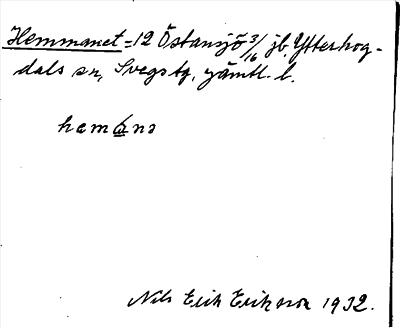 Hemmanet=12 Östansjö 3/16 jb, Ytterhog-
dals sn, Svegs tg, Jämtl. l.
hemånə
Nils Erik Eriksson 1932.